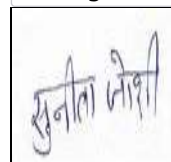 सुनीता जोशी